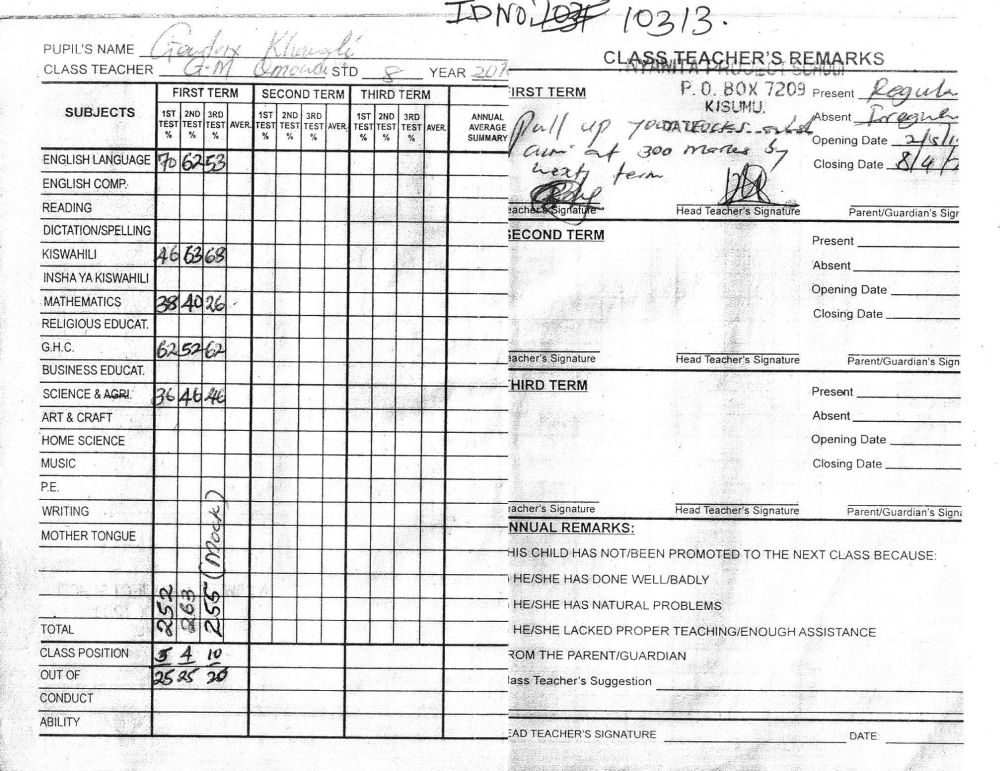 IDNO: 10313.
PUPIL'S NAME Khwali
CLASS TEACHER G.M STD 8 YEAR 201
SUBJECTS FIRST TERM SECOND TERM THIRD TERM ANNUAL AVERAGE SUMMARY
1ST TEST % 2ND TEST % 3RD TEST % AVER. 1ST TEST % 2ND TEST % 3RD TEST % AVER. 1ST TEST % 2ND TEST % 3RD TEST % AVER.
ENGLISH LANGUAGE 70 62 53
ENGLISH COMP.
READING
DICTATION/SPELLING
KISWAHILI 46 63 68
INSHA YA KISWAHILI
MATHEMATICS 38 40 26
RELIGIOUS EDUCAT.
G.H.C. 62 52 62
BUSINESS EDUCAT.
SCIENCE & AGRI. 36 46 46
ART & CRAFT
HOME SCIENCE
MUSIC
P.E.
WRITING
MOTHER TONGUE
TOTAL 252 263 255 (Mock)
CLASS POSITION 5 4 10
OUT OF 25 25 20
CONDUCT
ABILITY
CLASS TEACHER'S REMARKS
NYANITA PROJECT SCHOOL
IRST TERM P. O. BOX 7209 Present Regula
KISUMU. Absent Irregula
Pull up your DATE Opening Date 2/5/1
aim at 300 marks by Closing Date 8/4/
next term
eacher's Signature Head Teacher's Signature Parent/Guardian's Sign
ECOND TERM
Present
Absent
Opening Date
Closing Date
eacher's Signature Head Teacher's Signature Parent/Guardian's Sign
HIRD TERM
Present
Absent
Opening Date
Closing Date
eacher's Signature Head Teacher's Signature Parent/Guardian's Signa
NNUAL REMARKS:
HIS CHILD HAS NOT/BEEN PROMOTED TO THE NEXT CLASS BECAUSE:
HE/SHE HAS DONE WELL/BADLY
HE/SHE HAS NATURAL PROBLEMS
HE/SHE LACKED PROPER TEACHING/ENOUGH ASSISTANCE
ROM THE PARENT/GUARDIAN
lass Teacher's Suggestion
EAD TEACHER'S SIGNATURE DATE